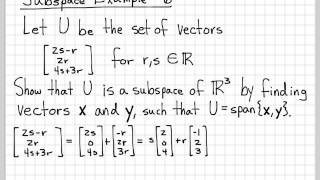 Subspace Example 6
Let U be the set of vectors
[2s-r
2r
4s+3r] for r,s ∈ ℝ
Show that U is a subspace of ℝ³ by finding
vectors x and y, such that U=span{x,y}.
[2s-r
2r
4s+3r] = [2s
0
4s] + [-r
2r
3r] = s[2
0
4] + r[-1
2
3]